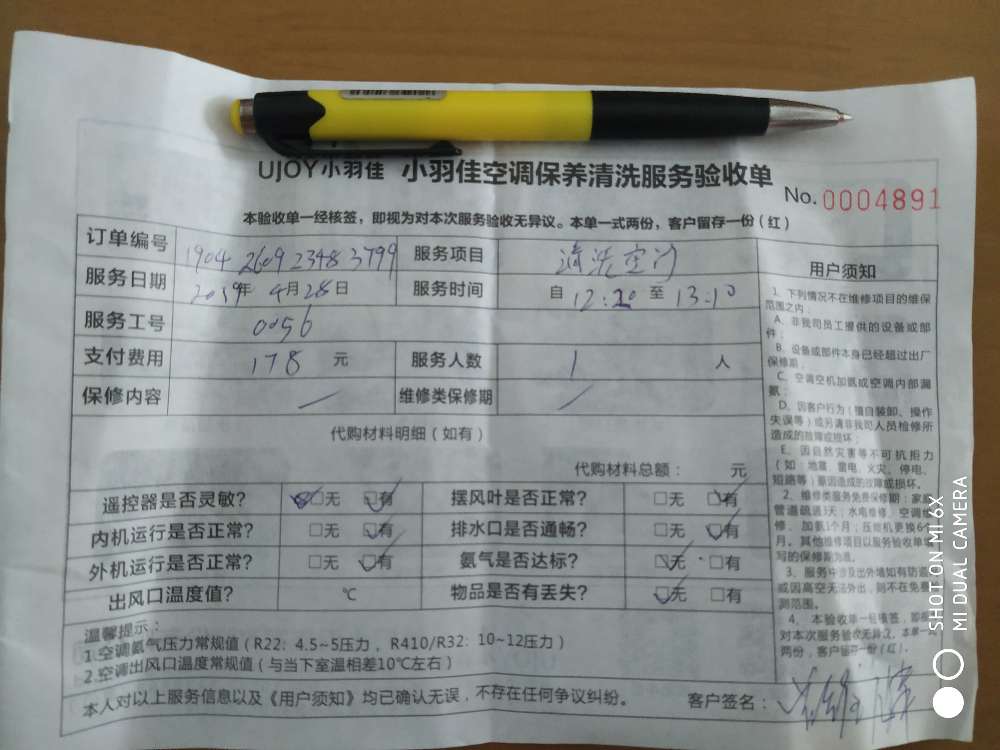 UJOY小羽佳 小羽佳空调保养清洗服务验收单
No. 0004891
本验收单一经核签，即视为对本次服务验收无异议。本单一式两份，客户留存一份（红）
订单编号 1904 2609 2348 3799 服务项目 清洗空门
服务日期 2019年 4月28日 服务时间 自 12:20 至 13:10
服务工号 0056
支付费用 178 元 服务人数 1 人
保修内容 / 维修类保修期 /
代购材料明细（如有）
代购材料总额： 元
遥控器是否灵敏？ □无 □有 摆风叶是否正常？ □无 □有
内机运行是否正常？ □无 □有 排水口是否通畅？ □无 □有
外机运行是否正常？ □无 □有 氨气是否达标？ □无 □有
出风口温度值？ ℃ 物品是否有丢失？ □无 □有
温馨提示：
1.空调氨气压力常规值（R22：4.5~5压力，R410/R32：10~12压力）
2.空调出风口温度常规值（与当下室温相差10℃左右）
本人对以上服务信息以及《用户须知》均已确认无误，不存在任何争议纠纷。 客户签名：
用户须知
1、下列情况不在维修项目的维保
范围之内：
A、非我司员工提供的设备或部
件；
B、设备或部件本身已经超过出厂
保修期；
C、空调空机加氨或空调内部漏
氨；
D、因客户行为（擅自装卸、操作
失误等）或另请非我司人员检修所
造成的故障或损坏；
E、因自然灾害等不可抗拒力
（如：地震、雷电、火灾、停电、
短路等）原因造成的故障或损坏。
2、维修类服务免费保修期：家庭
管道疏通3天；水电维修、空调维
修、加氨1个月；压缩机更换6个
月。其他维修项目以服务验收单填
写的保修期为准。
3、服务中涉及出外墙如有防盗
或因高空无法外出，则不在免费
测范围。
4、本验收单一经核签，即视
对本次服务验收无异议，本单一
两份，客户留存一份（红）。
SHOT ON MI 6X
MI DUAL CAMERA